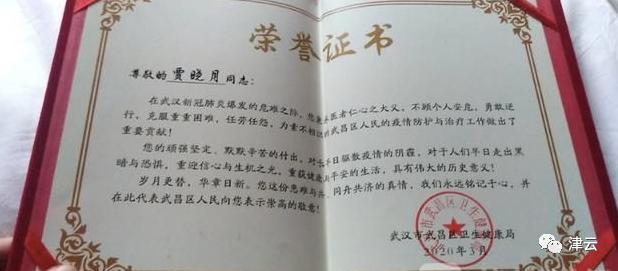 荣誉证书
尊敬的 贾晓月 同志：
在武汉新冠肺炎爆发的危难之际，您秉承医者仁心之大义，不顾个人安危，勇敢逆
行，克服重重困难，任劳任怨，为素不相识的武昌区人民的疫情防护与治疗工作做出了
重要贡献！
您的顽强坚定、默默辛苦的付出，对于早日驱散疫情的阴霾，对于人们早日走出黑
暗与恐惧，重迎信心与生机之光，重获健康与平安的生活，具有伟大的历史意义！
岁月更替，华章日新。您这份患难与共、同舟共济的真情，我们永远铭记于心，并
在此代表武昌区人民向您表示崇高的敬意！
武汉市武昌区卫生健康局
2020年3月
津云